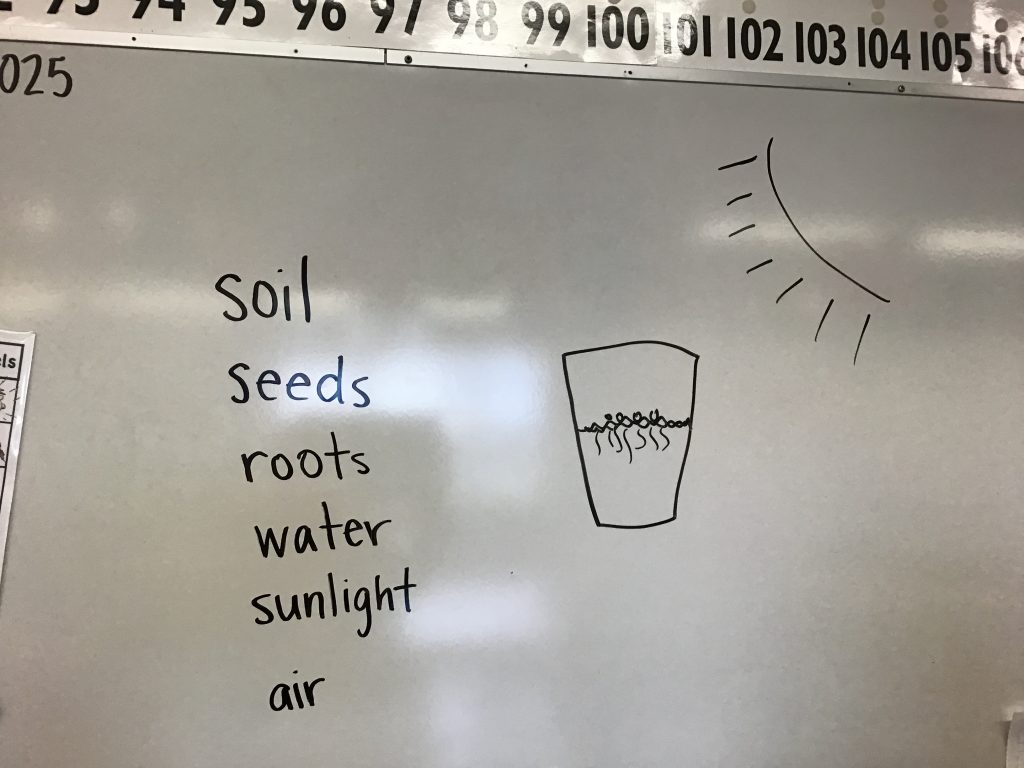 94 95 96 97 98 99 100 101 102 103 104 105 106
025
soil
seeds
roots
water
sunlight
air